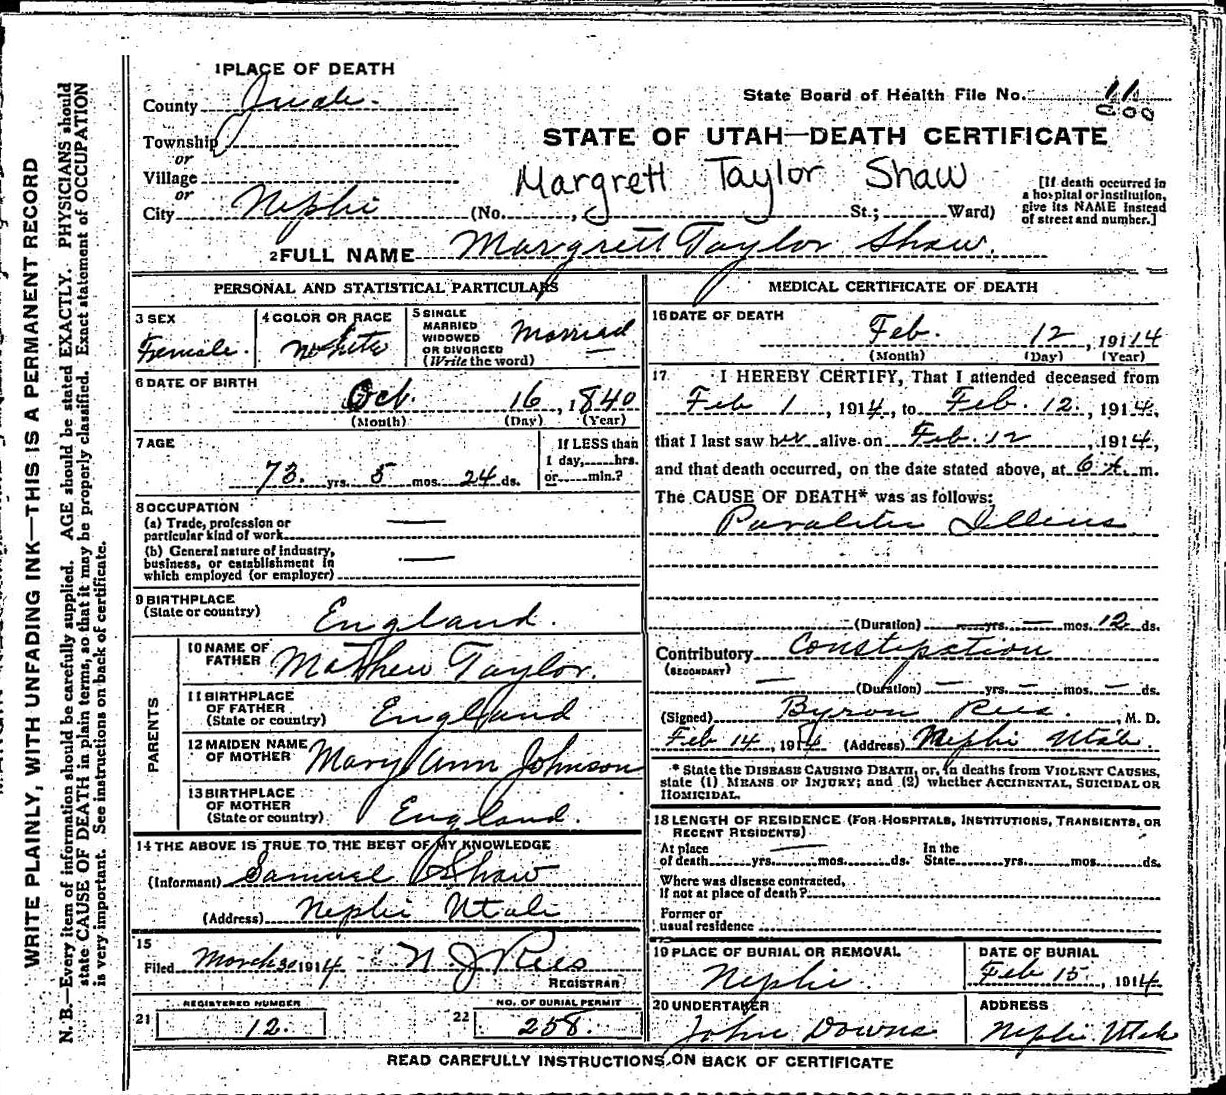 1 PLACE OF DEATH
County Juab.
Township
or
Village
or
City Nephi
State Board of Health File No. 11
STATE OF UTAH—DEATH CERTIFICATE
Margrett Taylor Shaw
(No. , St.; Ward)
[If death occurred in
a hospital or institution,
give its NAME instead
of street and number.]
2 FULL NAME Margrett Taylor Shaw.
PERSONAL AND STATISTICAL PARTICULARS
3 SEX
Female.
4 COLOR OR RACE
White
5 SINGLE
MARRIED
WIDOWED
OR DIVORCED
(Write the word)
Married
6 DATE OF BIRTH
Oct. 16, 1840
(Month) (Day) (Year)
7 AGE
73. yrs. 5 mos. 24 ds.
If LESS than
1 day, hrs.
or min.?
8 OCCUPATION
(a) Trade, profession or
particular kind of work
(b) General nature of industry,
business, or establishment in
which employed (or employer)
9 BIRTHPLACE
(State or country) England.
PARENTS
10 NAME OF
FATHER Mathew Taylor.
11 BIRTHPLACE
OF FATHER
(State or country) England
12 MAIDEN NAME
OF MOTHER Mary Ann Johnson
13 BIRTHPLACE
OF MOTHER
(State or country) England.
14 THE ABOVE IS TRUE TO THE BEST OF MY KNOWLEDGE
(Informant) Samuel Shaw
(Address) Nephi Utah
15
Filed March 30 1914 N J Rees
REGISTRAR
21 REGISTERED NUMBER
12.
22 NO. OF BURIAL PERMIT
258.
MEDICAL CERTIFICATE OF DEATH
16 DATE OF DEATH
Feb. 12, 1914
(Month) (Day) (Year)
17. I HEREBY CERTIFY, That I attended deceased from
Feb 1, 1914, to Feb. 12., 1914,
that I last saw her alive on Feb. 12, 1914,
and that death occurred, on the date stated above, at 6 A. m.
The CAUSE OF DEATH* was as follows:
Paralitic Illeus
(Duration) yrs. — mos. 12 ds.
Contributory Constipation
(SECONDARY)
(Duration) — yrs. — mos. — ds.
(Signed) Byron Rees., M. D.
Feb 14, 1914 (Address) Nephi Utah.
* State the DISEASE CAUSING DEATH, or, in deaths from VIOLENT CAUSES,
state (1) MEANS OF INJURY; and (2) whether ACCIDENTAL, SUICIDAL OR
HOMICIDAL.
18 LENGTH OF RESIDENCE (FOR HOSPITALS, INSTITUTIONS, TRANSIENTS, OR
RECENT RESIDENTS)
At place
of death yrs. mos. ds.
In the
State yrs. mos. ds.
Where was disease contracted,
if not at place of death?
Former or
usual residence
19 PLACE OF BURIAL OR REMOVAL
Nephi.
DATE OF BURIAL
Feb 15, 1914
20 UNDERTAKER
John Downs
ADDRESS
Nephi. Utah
READ CAREFULLY INSTRUCTIONS ON BACK OF CERTIFICATE
WRITE PLAINLY, WITH UNFADING INK—THIS IS A PERMANENT RECORD
N. B.—Every item of information should be carefully supplied. AGE should be stated EXACTLY. PHYSICIANS should
state CAUSE OF DEATH in plain terms, so that it may be properly classified. Exact statement of OCCUPATION
is very important. See instructions on back of certificate.